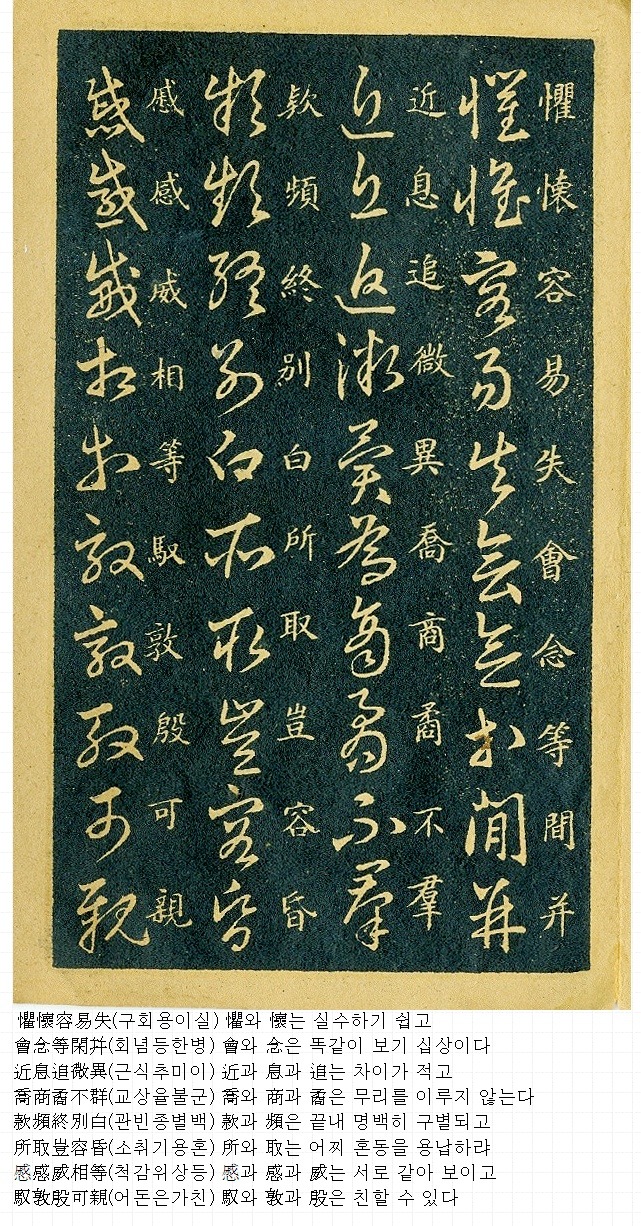 懼懐容易失會念等間并
懼懐容易失會念等間并
近息追微異喬商矞不羣
近息追微異喬商矞不羣
欵頻終别白所取豈容昏
欵頻終别白所取豈容昏
慼感威相等馭敦殷可親
慼感威相等馭敦殷可親
懼懷容易失(구회용이실) 懼와 懷는 실수하기 쉽고
會念等閑幷(회념등한병) 會와 念은 똑같이 보기 십상이다
近息追微異(근식추미이) 近과 息과 追는 차이가 적고
喬商矞不群(교상율불군) 喬와 商과 矞은 무리를 이루지 않는다
款頻終別白(관빈종별백) 款과 頻은 끝내 명백히 구별되고
所取豈容昏(소취기용혼) 所와 取는 어찌 혼동을 용납하랴
慼感威相等(척감위상등) 慼과 感과 威는 서로 같아 보이고
馭敦殷可親(어돈은가친) 馭와 敦과 殷은 친할 수 있다